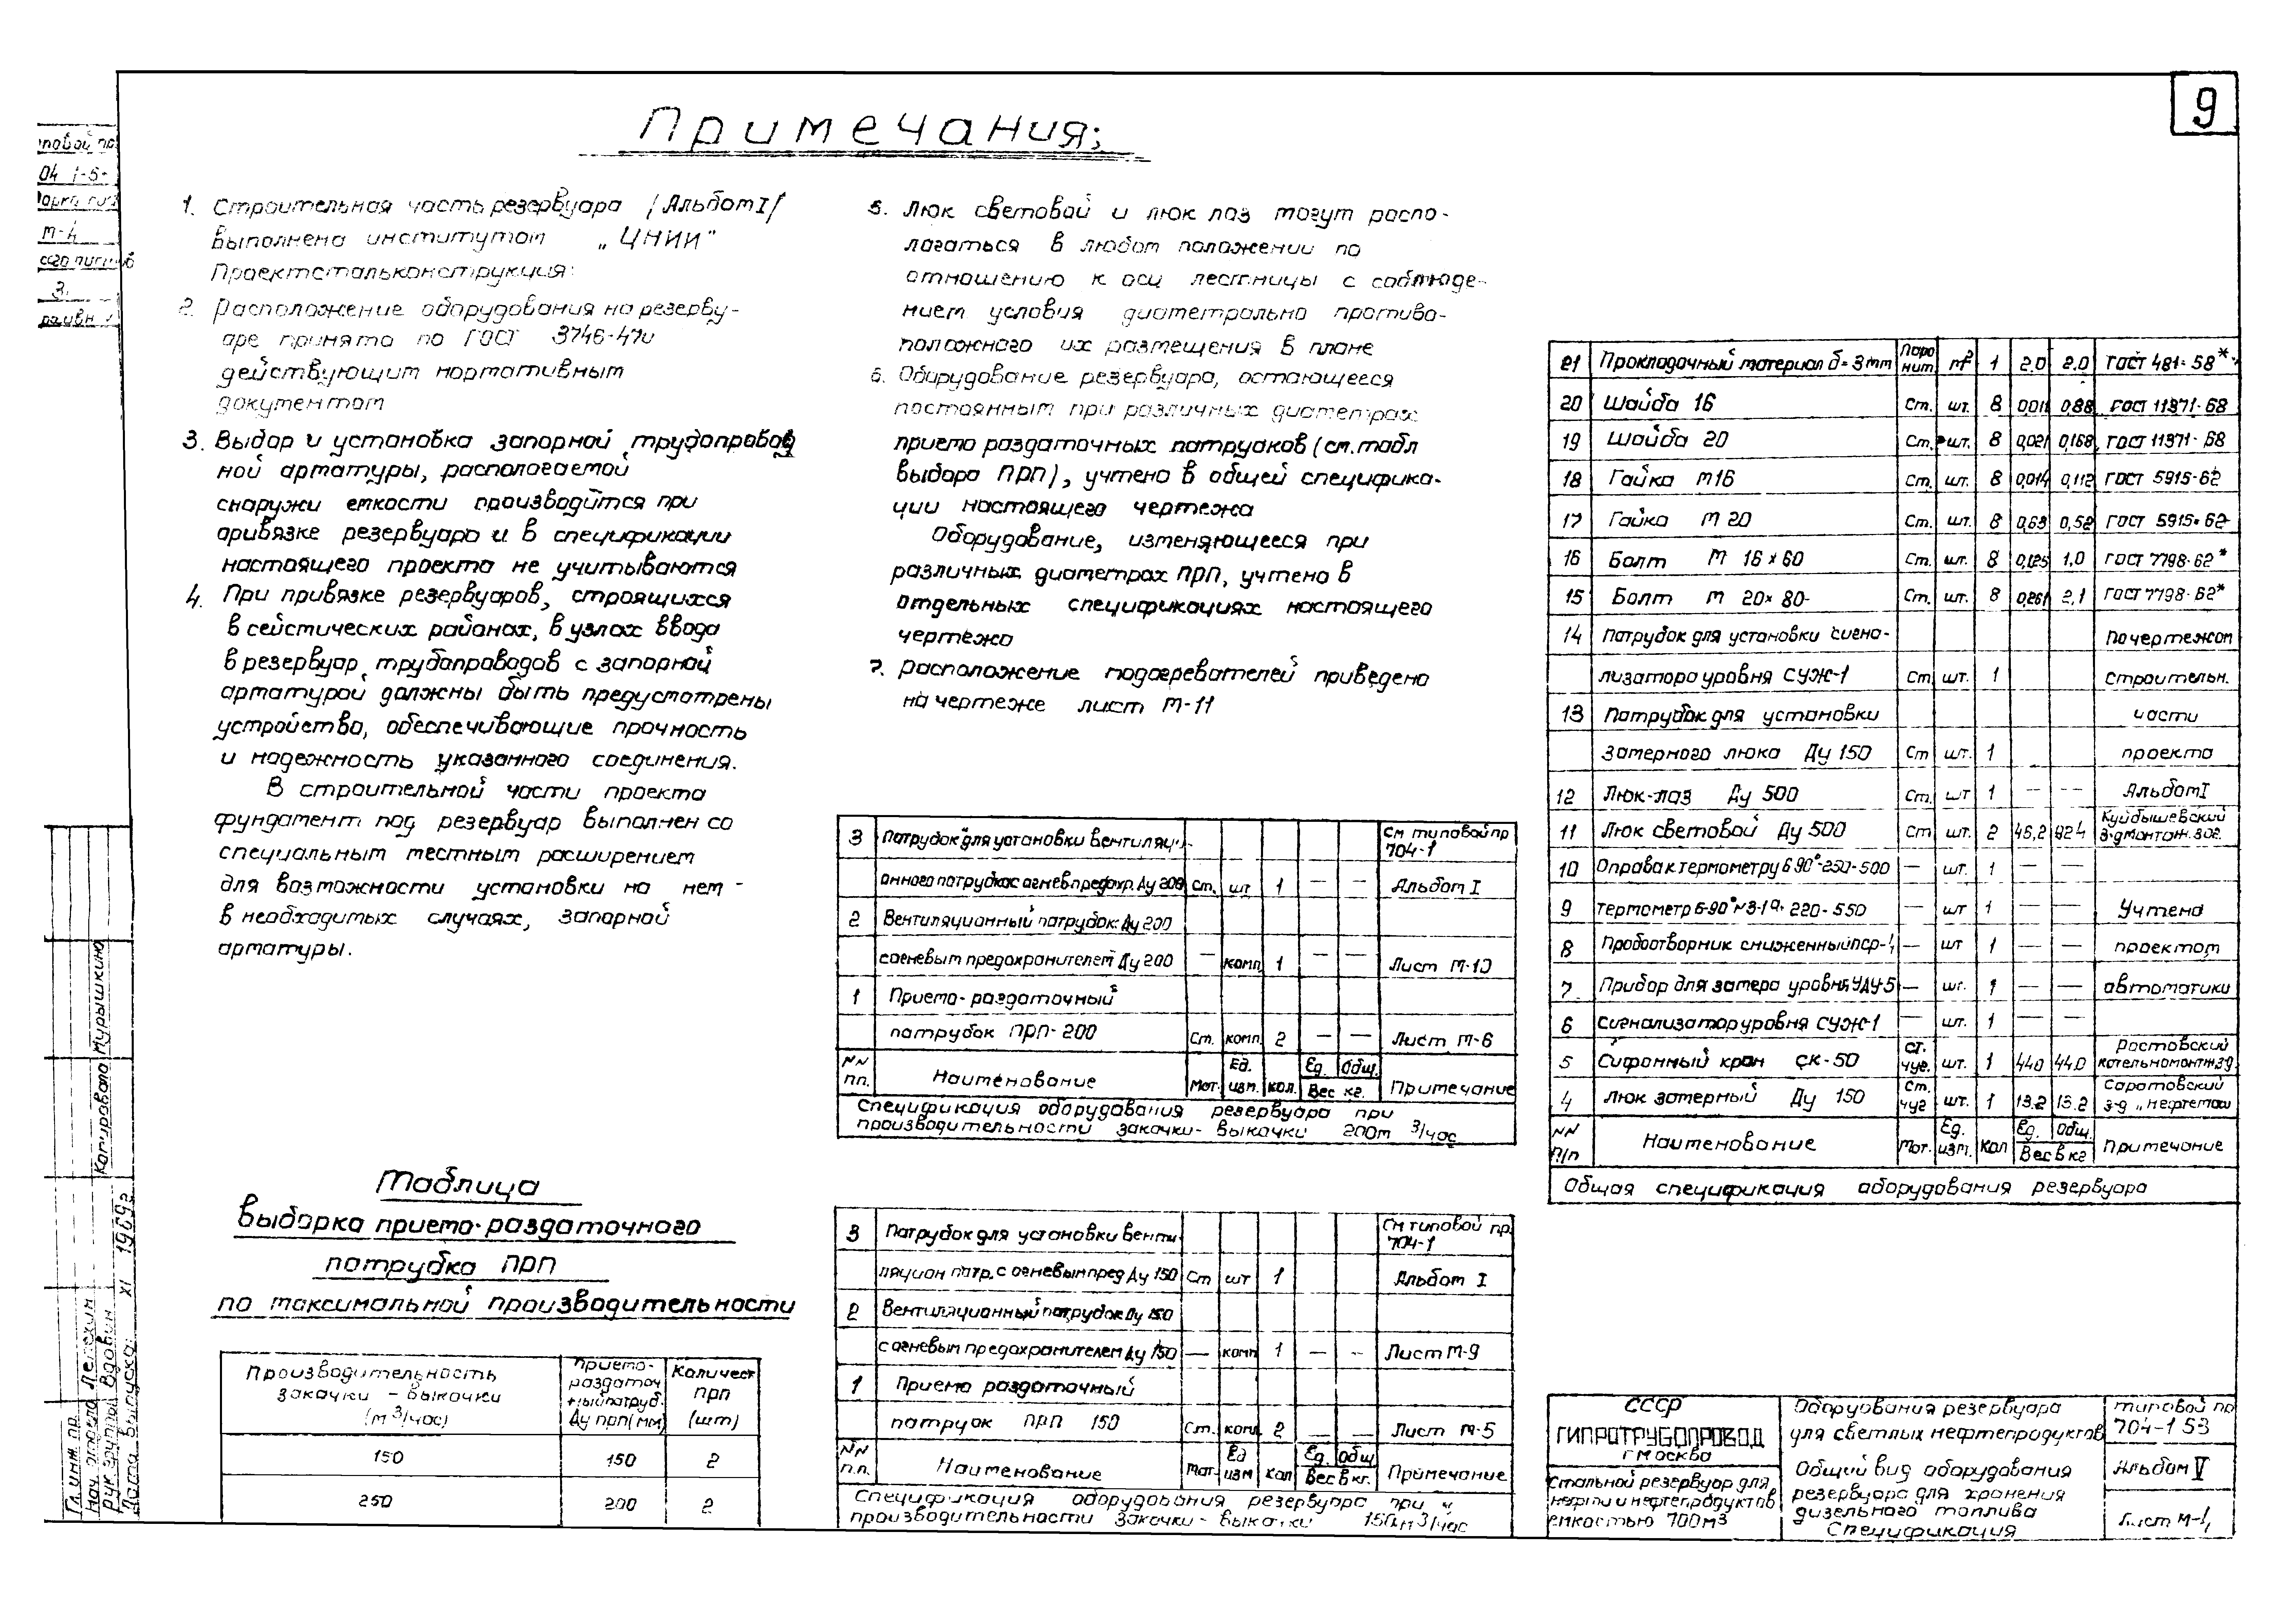 9
Примечания:
1. Строительная часть резервуара /Альбом I/
выполнена институтом „ЦНИИ"
Проектстальконструкция.
2. Расположение оборудования на резерву-
аре принято по ГОСТ 3746-47 и
действующим нормативным
документам
3. Выбор и установка запорной трубопровод
ной арматуры, располагаемой
снаружи емкости производится при
привязке резервуара и в спецификации
настоящего проекта не учитываются
4. При привязке резервуаров, строящихся
в сейсмических районах, в узлах ввода
в резервуар трубопроводов с запорной
арматурой должны быть предусмотрены
устройства, обеспечивающие прочность
и надежность указанного соединения.
В строительной части проекта
фундамент под резервуар выполнен со
специальным местным расширением
для возможности установки на нем -
в необходимых случаях, запорной
арматуры.
5. Люк световой и люк лаз могут распо-
лагаться в любом положении по
отношению к оси лестницы с соблюде-
нием условия диаметрально противо-
положного их размещения в плане
6. Оборудование резервуара, остающееся
постоянным при различных диаметрах
приемо раздаточных патрубков (см. табл
выбора ПРП), учтено в общей специфика-
ции настоящего чертежа
Оборудование, изменяющееся при
различных диаметрах ПРП, учтено в
отдельных спецификациях настоящего
чертежа
7. Расположение подогревателей приведено
на чертеже лист М-11
Таблица
выборка приемо-раздаточного
патрубка ПРП
по максимальной производительности
Производительность закачки - выкачки (м3/час) | приемо-раздаточ ный патруб. Ду ПРП(мм) | Количест ПРП (шт)
150 150 2
250 200 2
3 Патрубок для установки вентиляци- См типовой пр 704-1
онного патрубка с огнев предохр. Ду 200 Ст. шт 1 — — Альбом I
2 Вентиляционный патрубок Ду 200
с огневым предохранителем Ду 200 — комп 1 — — Лист М-10
1 Приемо-раздаточный
патрубок ПРП-200 Ст. комп. 2 — — Лист М-6
NN пп. Наименование Мат. Ед. изм. кол. Ед. Общ. Вес кг. Примечание
Спецификация оборудования резервуара при
производительности закачки-выкачки 200м 3/час
3 Патрубок для установки венти- См типовой пр. 704-1
ляцион патр. с огневым пред Ду 150 Ст шт 1 Альбом I
2 Вентиляционный патрубок Ду 150
с огневым предохранителем Ду 150 — комп 1 — – Лист М-9
1 Приемо раздаточный
патруок ПРП 150 Ст. комп. 2 — — Лист М-5
NN п.п. Наименование Мат. Ед изм кол Ед. Общ Вес в кг. Примечание
Спецификация оборудования резервуара при
производительности закачки-выкачки 150м3/час
21 Прокладочный материал δ=3мм Паро нит м² 1 2.0 2.0 ГОСТ 481-58*
20 Шайба 16 Ст. шт. 8 0,011 0,88 ГОСТ 11371-68
19 Шайба 20 Ст. шт. 8 0,021 0,168 ГОСТ 11371-68
18 Гайка М16 Ст. шт. 8 0,014 0,112 ГОСТ 5915-62
17 Гайка М 20 Ст. шт. 8 0,63 0,52 ГОСТ 5915-62
16 Болт М 16×60 Ст. шт. 8 0,125 1,0 ГОСТ 7798-62*
15 Болт М 20×80 Ст. шт. 8 0,261 2,1 ГОСТ 7798-62*
14 Патрубок для установки сигна- По чертежам
лизатора уровня СУЖ-1 Ст шт. 1 строительн.
13 Патрубок для установки части
замерного люка Ду 150 Ст шт. 1 проекта
12 Люк-лаз Ду 500 Ст. шт 1 – – Альбом I
11 Люк световой Ду 500 Ст шт. 2 46,2 92 4 Куйбышевский з-д монтаж. заг.
10 Оправа к термометру Б 90°-230-500 — шт. 1 —
9 Термометр Б-90° 220-550 — шт 1 — — Учтено
8 Пробоотборник сниженный ПСР-4 — шт 1 — — проектом
7 Прибор для замера уровня УДУ-5 — шт. 1 — — автоматики
6 Сигнализатор уровня СУЖ-1 — шт. 1 — —
5 Сифонный кран СК-50 Ст. чуг. шт. 1 44.0 44.0 Ростовский котельномонтж. з-д.
4 Люк замерный Ду 150 Ст. чуг шт. 1 13.2 13.2 Саратовский з-д „Нефтемаш
NN п/п Наименование Мат. Ед. изм. Кол Ед. Общ. Вес в кг Примечание
Общая спецификация оборудования резервуара
СССР
ГИПРОТРУБОПРОВОД
г Москва
Стальной резервуар для
нефти и нефтепродуктов
емкостью 700м3
Оборуования резервуара
для светлых нефтепродуктов
Общий вид оборудования
резервуара для хранения
дизельного топлива
Спецификация
типовой пр
704-1 53
Альбом V
Лист М-4
повой пр
04 1-5
М-4
3.
Копировала Мурышкина
Гл. инж. пр.
Нач. отдела Лепехин
рук. группы Вдовин
Дата выпуска: XI 1969г